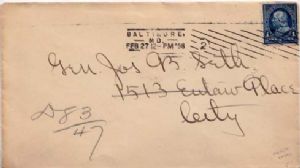 BALTIMORE,
MD.
FEB 27 12-PM '98
2
Gen. Jos B. Seth.
1513 Eutaw Place
City
D83
47